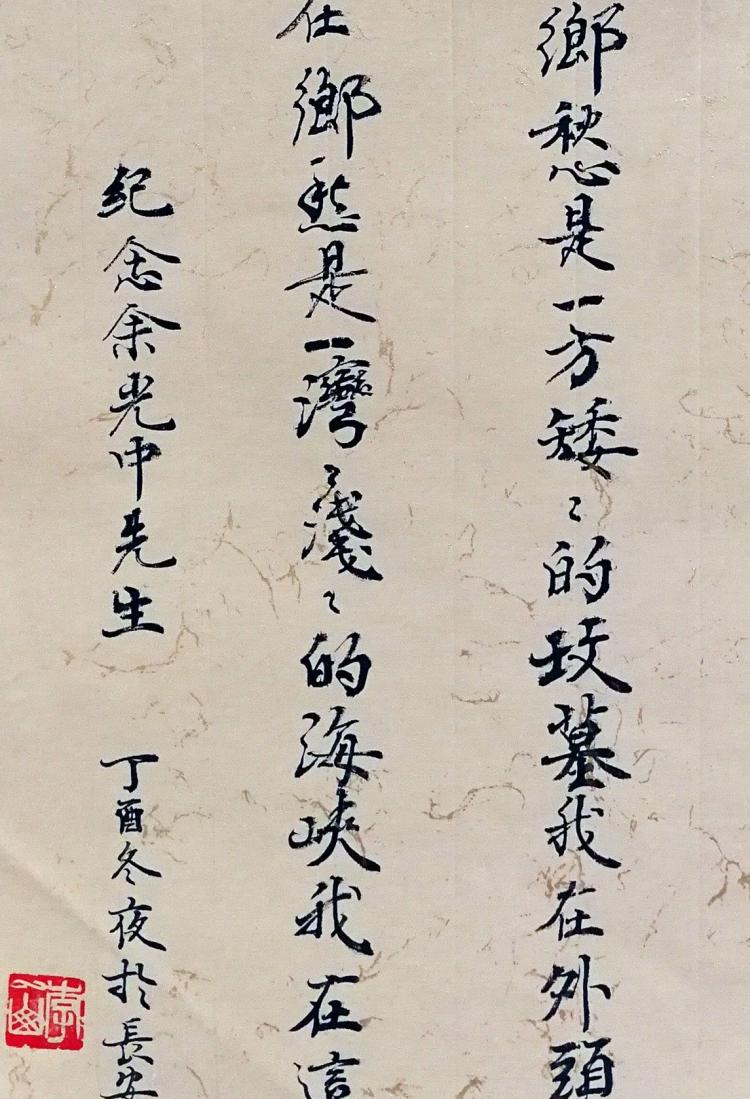 鄉愁是一方矮〻的坟墓我在外頭
鄉愁是一灣〻淺〻的海峽我在這
紀念余光中先生
丁酉冬夜於長安